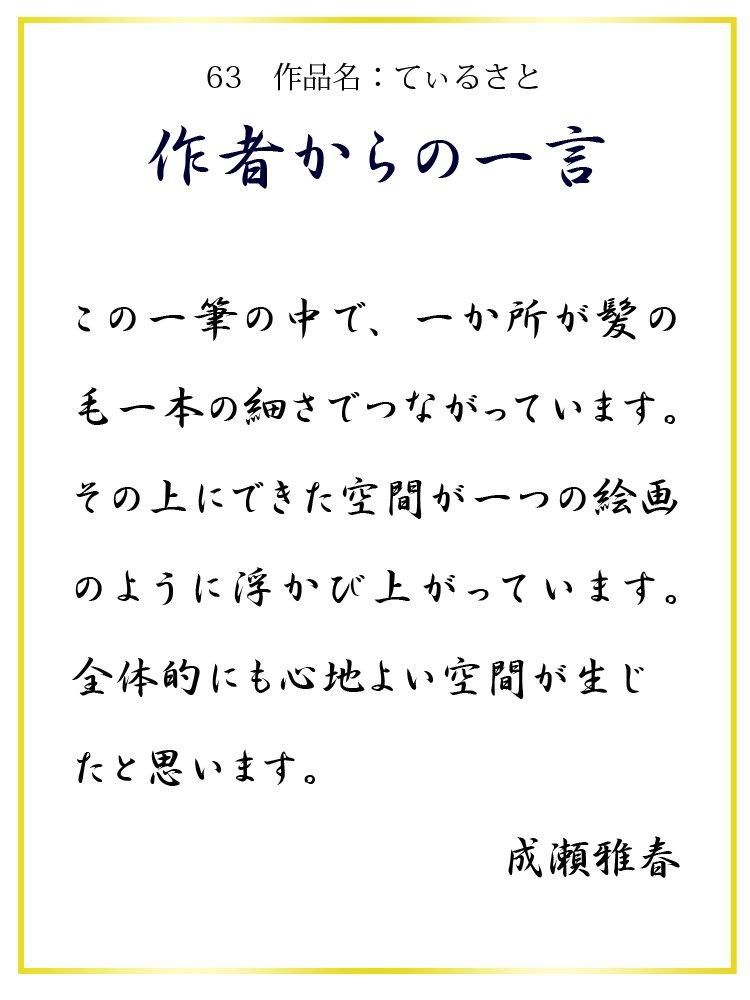 63　作品名：てぃるさと
作者からの一言
この一筆の中で、一か所が髪の
毛一本の細さでつながっています。
その上にできた空間が一つの絵画
のように浮かび上がっています。
全体的にも心地よい空間が生じ
たと思います。
成瀬雅春